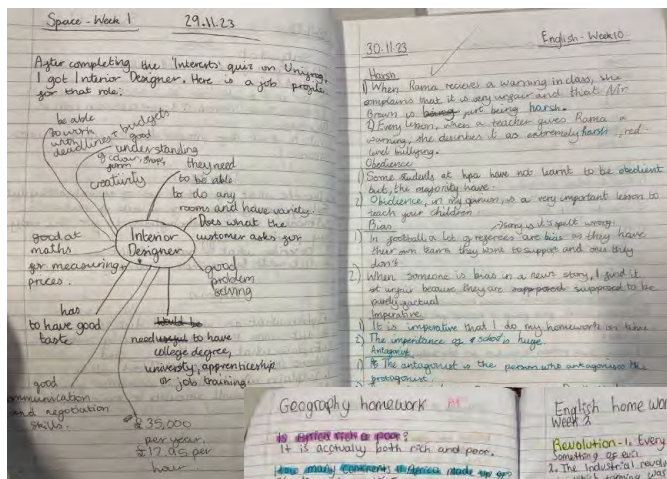 Space - Week 1
29.11.23
After completing the 'Interests' quiz on Unifrog,
I got Interior Designer. Here is a job profile
for that role:
be able
to work
deadlines + budgets
good
understanding
of colour, shape,
creativity
they need
to be able
to do any
rooms and have variety.
Does what the
customer asks for
Interior
Designer
good at
maths
for measuring +
prices.
good
problem
solving
has
to have good
taste
need to have
college degree,
university, apprenticeship
or job training.
good
communication
and negotiation
skills.
£35,000
per year.
£17.95 per
hour
30.11.23
English - Week 10
Harsh
1) When Rama recieves a warning in class, she
complains that it is very unfair and that Mr
Brown is just being harsh.
2) Every lesson, when a teacher gives Rama a
warning, she describes it as extremely harsh,
level bullying.
Obedience
1) Some students at hpa have not learnt to be obedient
but, the majority have.
2) Obidience, in my opinion, is a very important lesson to
teach your children
Bias
1) In football a lot of referees are bias as they have
their own teams they want to support and ones they
don't
2) When someone is bias in a news story, I find it
unfair because they are supposed to be
purely factual
Imperative
1) It is imperative that I do my homework on time.
2) The importance of school is huge.
Antagonist
1) The antagonist is the person who antagonises the
protagonist
Geography homework
Is Africa rich or poor?
It is acctually both rich and poor.
How many continents is Africa made up of?
English home wor
Week 2
Revolution - 1. Every
Something of evil.
2. The Industrial revolu